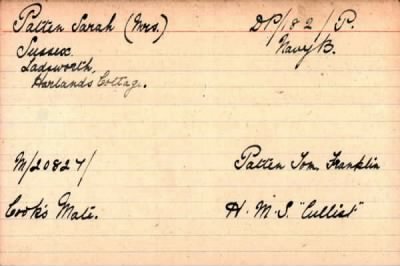 Patten Sarah (Mrs.) DP/182/P.
Sussex. Navy B.
Lodsworth,
Harlands Cottage.
M/20827/ Patten Tom. Franklin
Cook's Mate. H.M.S. "Cullist"